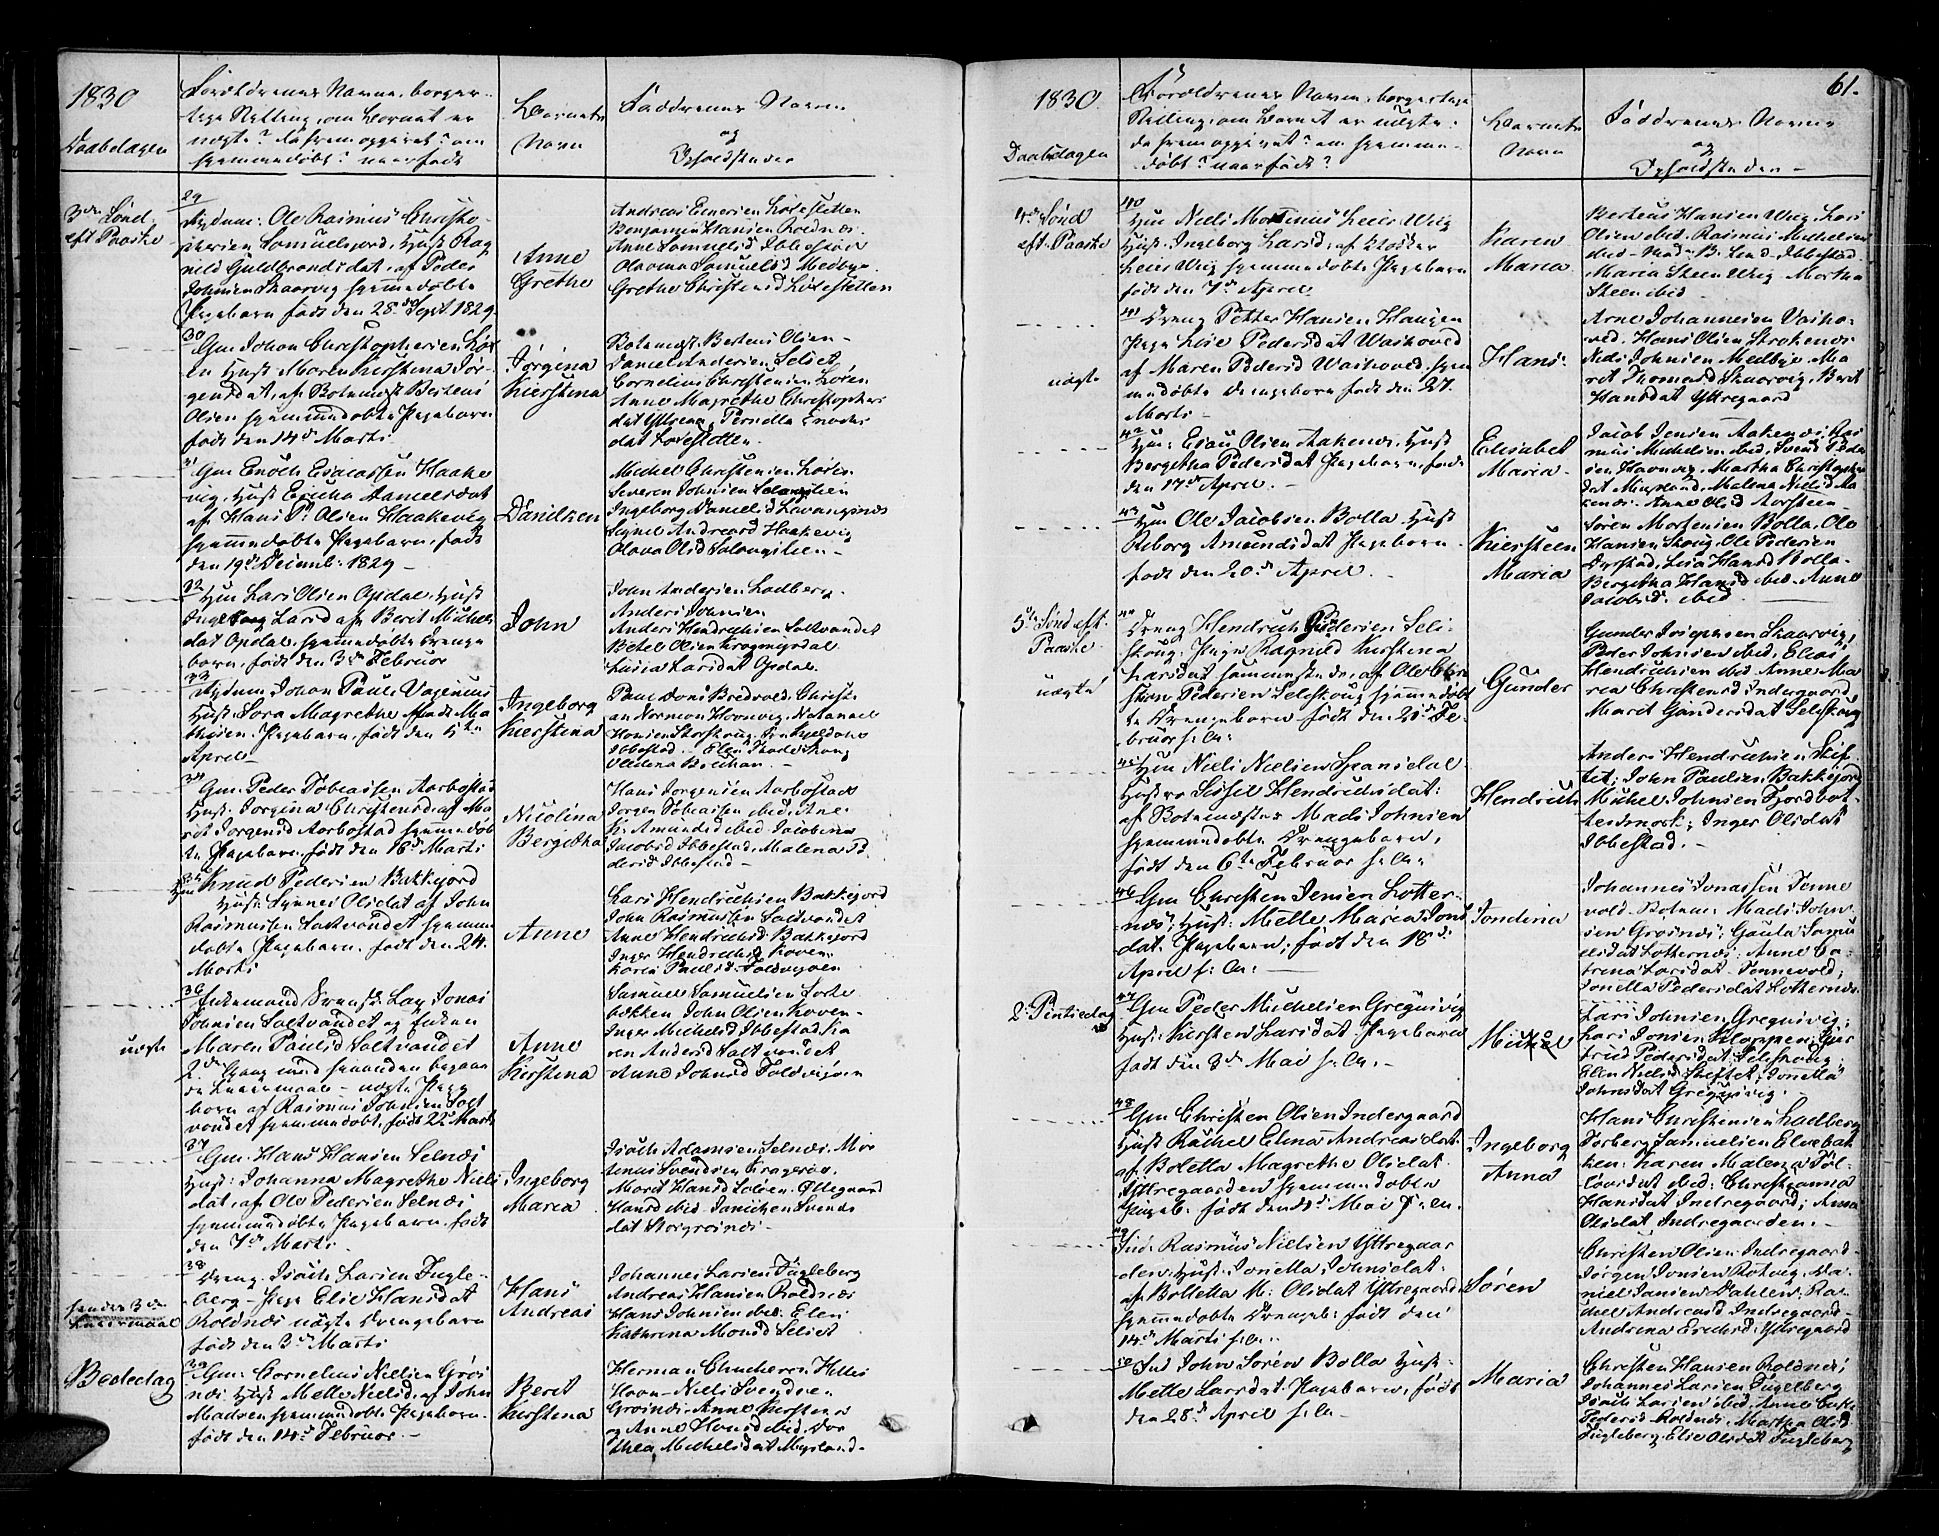 1830
Daabsdagen
Forældrenes Navne, borger-
lige Stilling, om Barnet er
uægte? da frem opgivet? om
hjemmedøbt? naar født
Barnets
Navn
Faddrenes Navne
og
Opholdsteder
3die Sønd.
eft Paaske
29
Huusm: Ole Rasmus Christo-
phersen Samuelsjord, Hust Rag
nild Guldbrandsdat, af Peder
Johnsen Skaarvig hjemmedøbte
Pigebarn født den 28de Sept. 1829
Anne
Grethe
Benjamin Hansen Roldnæs
Anne Samuelsd Ibbestad
Grethe Christensd Lovestetten
30
Gm Johan Christophersen Lov
en Hust Maren Kirstena Jør-
gensdat, af Botsmest Berteus
Olsen hjemmedøbte Pigebarn
født den 14de Marts
Jørgina
Kierstena
Botsmest: Berteus Olsen
Daniel Andersen Selset
Cornelius Christensen Loven
Anne Magrethe Christophers
dat Yttreg, Pernilla Enochs
dat Lovestetten.
31
Gm Enoch Esaiassen Haake
vig, Hust Ericka Samuelsdat
af Hans P. Olsen Haakevig
hjemmedøbte Pigebarn, født
den 19de Decemb: 1829
Danilken
Michel Christensen Loven
Severen Johnsen Salangslien
Ingeborg Danielsd Lavangsnæs
Synne Andreasd Haakevig
Olava Olsd Salangslien
32
Gm Lars Olsen Opdal, Hust
Ingeborg Larsd af Berit Michels
dat Opdal hjemmedøbte Drenge
barn, født den 3de Februar
John
John Andersen Ladberg.
Anders Johnsen
Anders Hendrichsen Saltvandet
Betel Olsen Krogmyrdal
Lusia Larsdat Opdal
33
Huusm Johan Paul Vagenius
Hust: Sara Magrethe født Ma
thisen. Pigebarn, født den 5te
April
Ingeborg
Kierstena
Paul Dons Bredvold, Christi
an Norman Havnvig, Natanael
Hansen Storskoug, Fru Kjeldahl
Ibbestad. Elen
34
Gm: Peder Tobiassen Aarbostad
Hust: Jorgina Christensd af Ma
rit Jørgensd Aarbostad hjemmedøb
te Pigebarn, født den 16de Marts
Nicolina
Bergitha
Hans Jørgensen Aarbostad
Jørgen Tobiassen ibid, Ane
K: Amundsd ibid: Jacobina
Jacobsd Ibbestad, Malena Pe
dersd Ibbestad
35
Gm Knud Pedersen Bakkejord
Hust: Synnev Olsdat af John
Rasmussen Saltvandet hjemme
døbte Pigebarn, født den 24.
Marts
Anne
Lars Hendrichsen Bakkejord
John Rasmussen Saltvandet
Anne Hendrichsd: Bakkejord
Inger Hendrichsd Hoven
Karen Paulsd: Foldvigøen
uægte
36
Enkemand Svensk Lap Jonas
Johnsen Saltvandet og Enken
Maren Paulsd Saltvandet
2de Gang med hinanden begaae
de Leiermaal - uægte Pige
born af Rasmus Johnsen Salt
vandet hjemmedøbt, født 22de Marts
Anne
Kirstena
Samuel Samuelsen Sorte
bakken John Olsen Hoven
Inger Michelsd Ibbestad, Ka
ren Andersd Saltvandet
Anne Johnsd Foldvigøen
37
Gm: Hans Hansen Selnæs
Hust: Johanna Magrethe Niels
dat, af Ole Pedersen Selnæs
hjemmedøbte Pigebarn, født
den 7de Marts
Ingeborg
Maria
Isach Adamsen Selnæs, Mor
tenus Svendsen Kragerøe,
Marit Hansd Løløen, Ollegaard
Hansd ibid. Danichen Svends
dat Storgroinæs
38
Dreng Isach Larsen Fugle-
berg Pige Elie Hansdat
Roldnæs uægte Drengebarn
født den 3de Marts
Hans
Andreas
Johannes Larsen Fugleberg
Andreas Hansen Roldnæs
Hans Johnsen ibid: Elen
Kathrina Monsd Selset
hendes 3die
Leiermaal
Bededag
39
Gm: Cornelius Nielsen Grøs
næs Hust Mette Nielsd. af John
Madsen hjemmedøbte Pigebarn
født den 14de Februar
Berit
Kirstena
Havn - Niels Svendsen
Groinæs - Anne Kirstena
og Anne Hansd ibid. Dor
thea Michelsdat Myrland
1830.
Daabsdagen
Forældrenes Navne, borgerlige
Stilling, om Barnet er uægte?
da frem opgivet? om hjemme-
døbt? naar født?
Barnets
Navn
Faddrenes Navne
og
Opholdstæden
61.
4de Sønd
eft. Paaske
40
Gm Niels Martinus Leier Wiig
Hust: Ingeborg Larsd, af Klokker
Leier Wiig hjemmedøbte Pigebarn
født den 7de April
Karen
Maria
Berteus Hansen Wiig, Lars
Olsen ibid. Rasmus Michelsen
ibid. Mad: B. Lund Ibbestad
Maria Steen Wiig. Martha
Steen ibid
uægte
41
Dreng Petter Hansen Haugen
Pige Lise Pedersdat Waihoved
af Maren Pedersd Waihoved, hjem
medøbte Drengebarn født den 27.
Marts
Hans:
Arne Johannesen Vaiho-
ved. Hans Olsen Strokenæs
Nils Johnsen Medbye. Ma
rit Thomasd Skaarvig, Berit
Hansdat Yttregaard
42
Gm: Esau Olsen Aakenæs, Hust
Bergetha Pedersdat Pigebarn, født
den 17de April.
Elisabet
Maria
Jacob Jensen Aakenæs, Ras
mus Michelsen ibid, Svend Peder
sen Havnvig, Martha Christophers
dat Myrland, Malena Nielsd Aa
kenæs. Anne Olsd Aarsteen
43
Gm Ole Jacobsen Bolla, Hust
Reborg Amundsdat Pigebarn
født den 20de April.
Kiersteen
Maria
Søren Mortensen Bolla, Ole
Hansen Skoug, Ole Pedersen
Dyrstad, Lisa Hansd Bolla
Bergetha Hansd ibid. Anne
Jacobsd. ibid
5te Sønd eft.
Paaske
uægte
44
Dreng Hendrich Pedersen Sele-
skoug. Pige Ragnild Kirstena
Larsdat sammesteds, af Ole Chri
stian Pedersen Seleskoug hjemmedøb
te Drengebarn født den 21de Fe-
bruar h: a:
Gunder
Gunder Josephsen Skaarvig,
Peder Johnsen ibid, Elias
Hendrichsen ibid Anne Ma
ria Christensd Indergaard,
Marit Gundersdat Seleskoug
45
Gm Niels Nielsen Spansdal
Hustro Sissel Hendrichsdat:
af Botsmester Mads Johnsen
hjemmedøbte Drengebarn,
født den 6te Februar h: a:
Hendrich
Anders Hendrichsen Skif
tet; John Paulsen Bakkejord
Michel Johnsen Fjordbot
teidmark; Inger Olsdat
Ibbestad.
46
Gm Christen Jensen Lotter-
næs, Hust: Mette Maria Jons
dat: Pigebarn, født den 18de
April h: a:
Jondina
Johannes Jonassen Tenne
vold. Botsm: Mads John
sen Groinæs; Gaula Samu
elsdat Lotternæs; Anne Ca-
trena Larsdat Tennevold;
Jonella Pedersdat Lotternæs
2 Pintsedag
47
Gm Peder Michelsen Gregusvig
Hust: Kiersten Larsdat. Pigebarn
født den 3de Mai h: a:
Michel
Lars Johnsen Gregusvig;
Lars Jonsen Kloppen; Gjer
trud Pedersdat Seleskoug;
Elen Nielsd Skiftet; Jonetta
Johnsdat Gregusvig.
48
Gm Christen Olsen Indergaard
Hust Rachel Elena Andreasdat
af Boletta Magrethe Olsdat
Yttregaarden hjemmedøbte
Pigeb: født den 8de Mai h: a:
Ingeborg
Anna
Hans Christensen Ladberg
Torberg Samuelsen Elvebak
ken: Karen Malena Tol-
lovsdat ibid: Christianna
Hansdat Indregaard; Anna
Olsdat Indregaarden.
49
Ind: Rasmus Nielsen Yttregaar
den: Hust: Jonetta Johnsdat:
af Boletta M: Olsdat Yttregaard
hjemmedøbte Drengeb: født den
14de Marts h: a:
Søren
Christen Olsen Indregaard
Jørgen Jonsen Rotvig. Da-
niel Jansen Dahlen, Ra-
chel Andreasd Indregaard
Andrina Ericksd: Yttregaard
50
Ind John Sørens Bolla Hust
Mette Larsdat. Pigebarn, født
den 28de April h: a:
Maria
Christen Hansen Roldnæs;
Johannes Larsen Fugelberg
Isach Larsen ibid. Anne Cath
Pedersd Roldnæs, Martha Olsd
Fugleberg Elie Olsdat Fugleberg